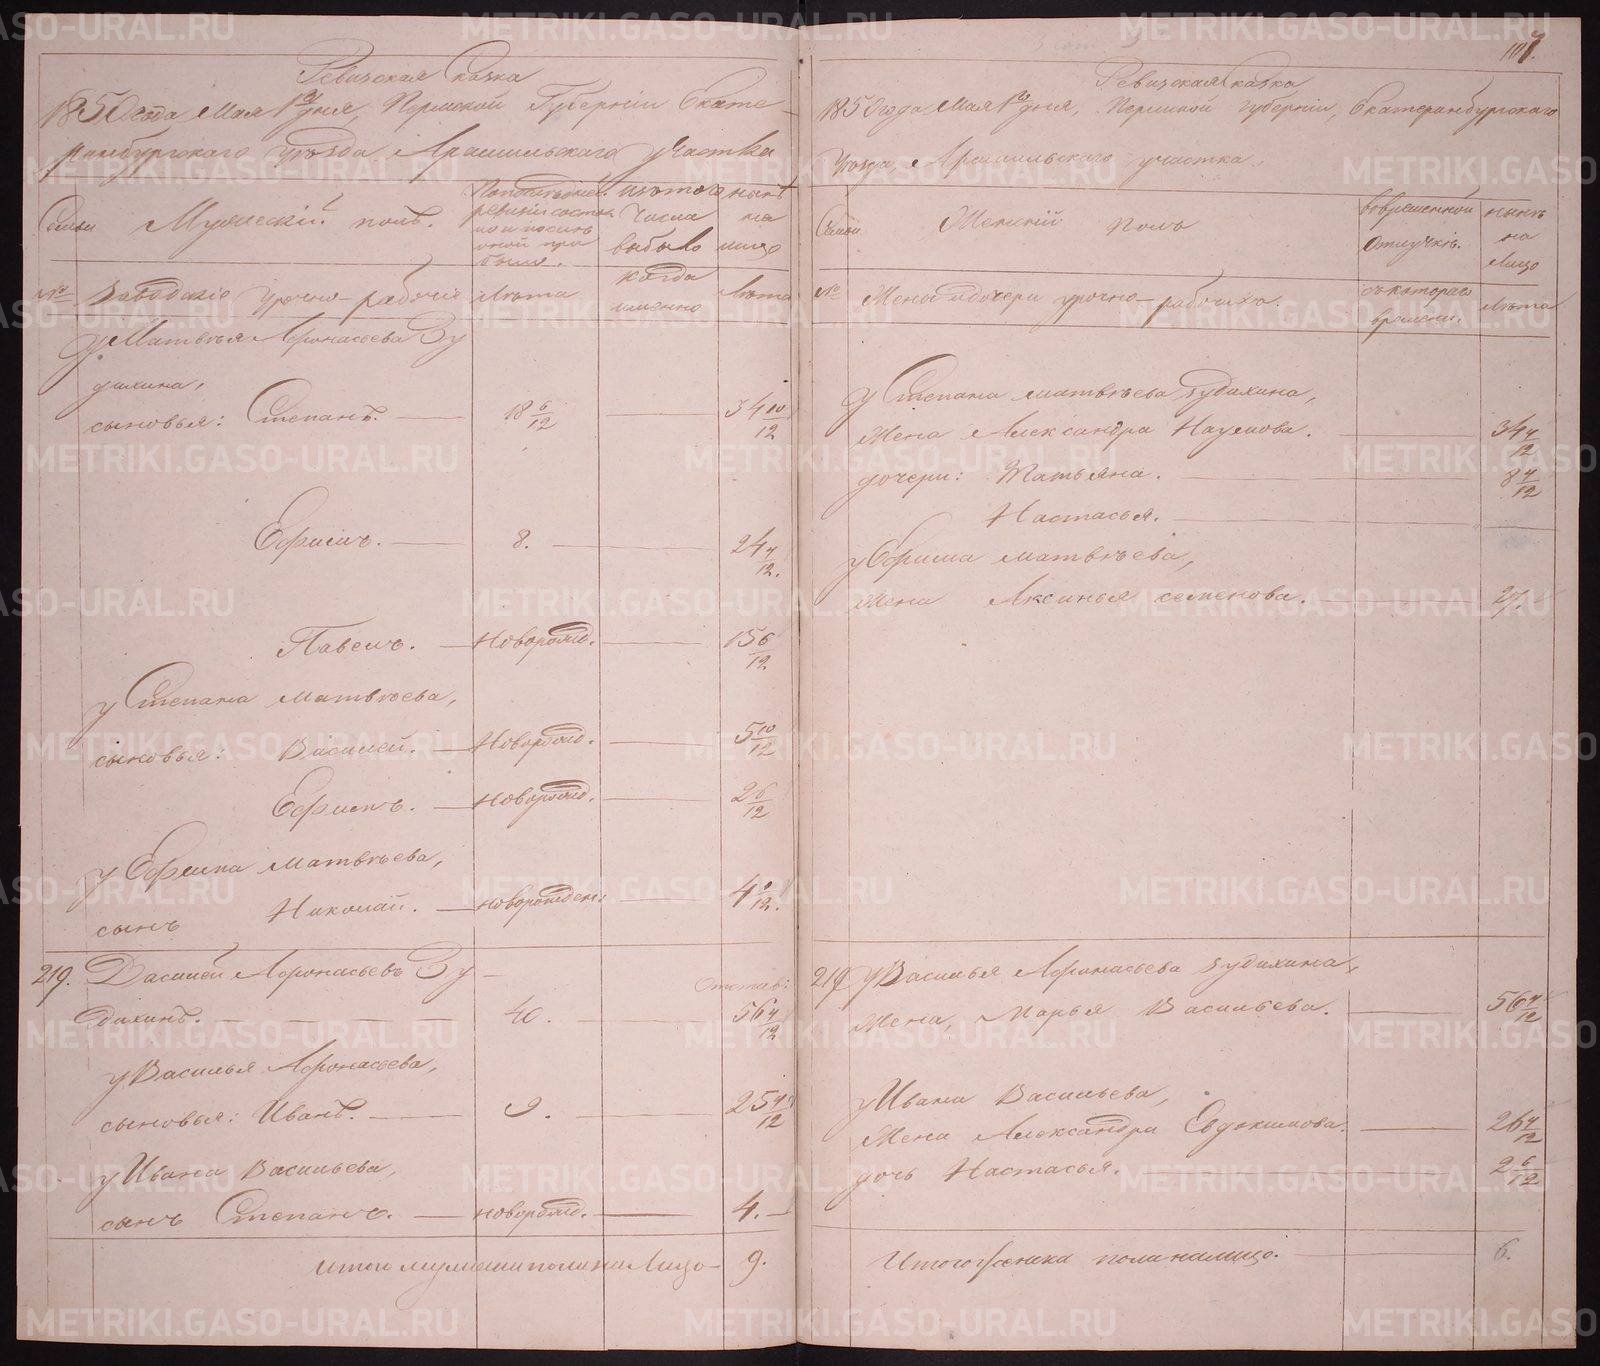 Ревизская сказка
1850 года Мая 1го дня, Пермской Губернiи Екате-
ринбургскаго Уѣзда Арамильскаго участка
Семьи
Мужескiй полъ.
По последней ревизiи состояло и после оной прибыло.
изъ того числа выбыло
нынѣ на лицо
№
Заводскiе урочно-рабочiе
Лѣта
когда именно
Лѣта
у Матвѣя Афонасьева Зу
дихина,
сыновья: Степанъ. — 18 6/12 — 34 10/12
Ефимъ. — 8. — 24 4/12.
Павелъ. — Новорожд. — 15 6/12
у Степана Матвѣева,
сыновья: Василей. — Новорожд. — 5 10/12
Ефимъ. — Новорожд. — 2 6/12
у Ефима Матвѣева,
сынъ Николай. — новорожден:
219. Василей Афонасьевъ Зу-
дихинъ. — 40. — 56 4/12
у Василья Афонасьева,
сыновья: Иванъ. — 9. — 25 4/12
у Ивана Васильева,
сынъ Степанъ. — новорожд. — 4. —
Итого мужеска пола на Лицо — 9.
107.
Ревизская сказка
1850 года Мая 1го дня, Пермской Губернiи, Екатеринбургскаго
Уѣзда, Арамильскаго участка.
Семьи
Женскiй полъ
во временной отлучкѣ.
нынѣ на лицо
№
Жены и дочери урочно-рабочихъ.
съ котораго времени.
Лѣта
у Степана Матвѣева Зудихина,
Жена Александра Наумова. — 34 4/12
дочери: Татьяна. — 8 4/12
Настасья. —
у Ефима Матвѣева,
Жена Аксинья семенова. — 27.
219 у Василья Афонасьева Зудихина,
Жена, Марья Васильева. — 56 4/12
у Ивана Васильева,
Жена Александра Евдокимова. — 26 4/12
дочь Настасья. — 2 6/12
Итого женска пола на лицо. — 6.
METRIKI.GASO-URAL.RU